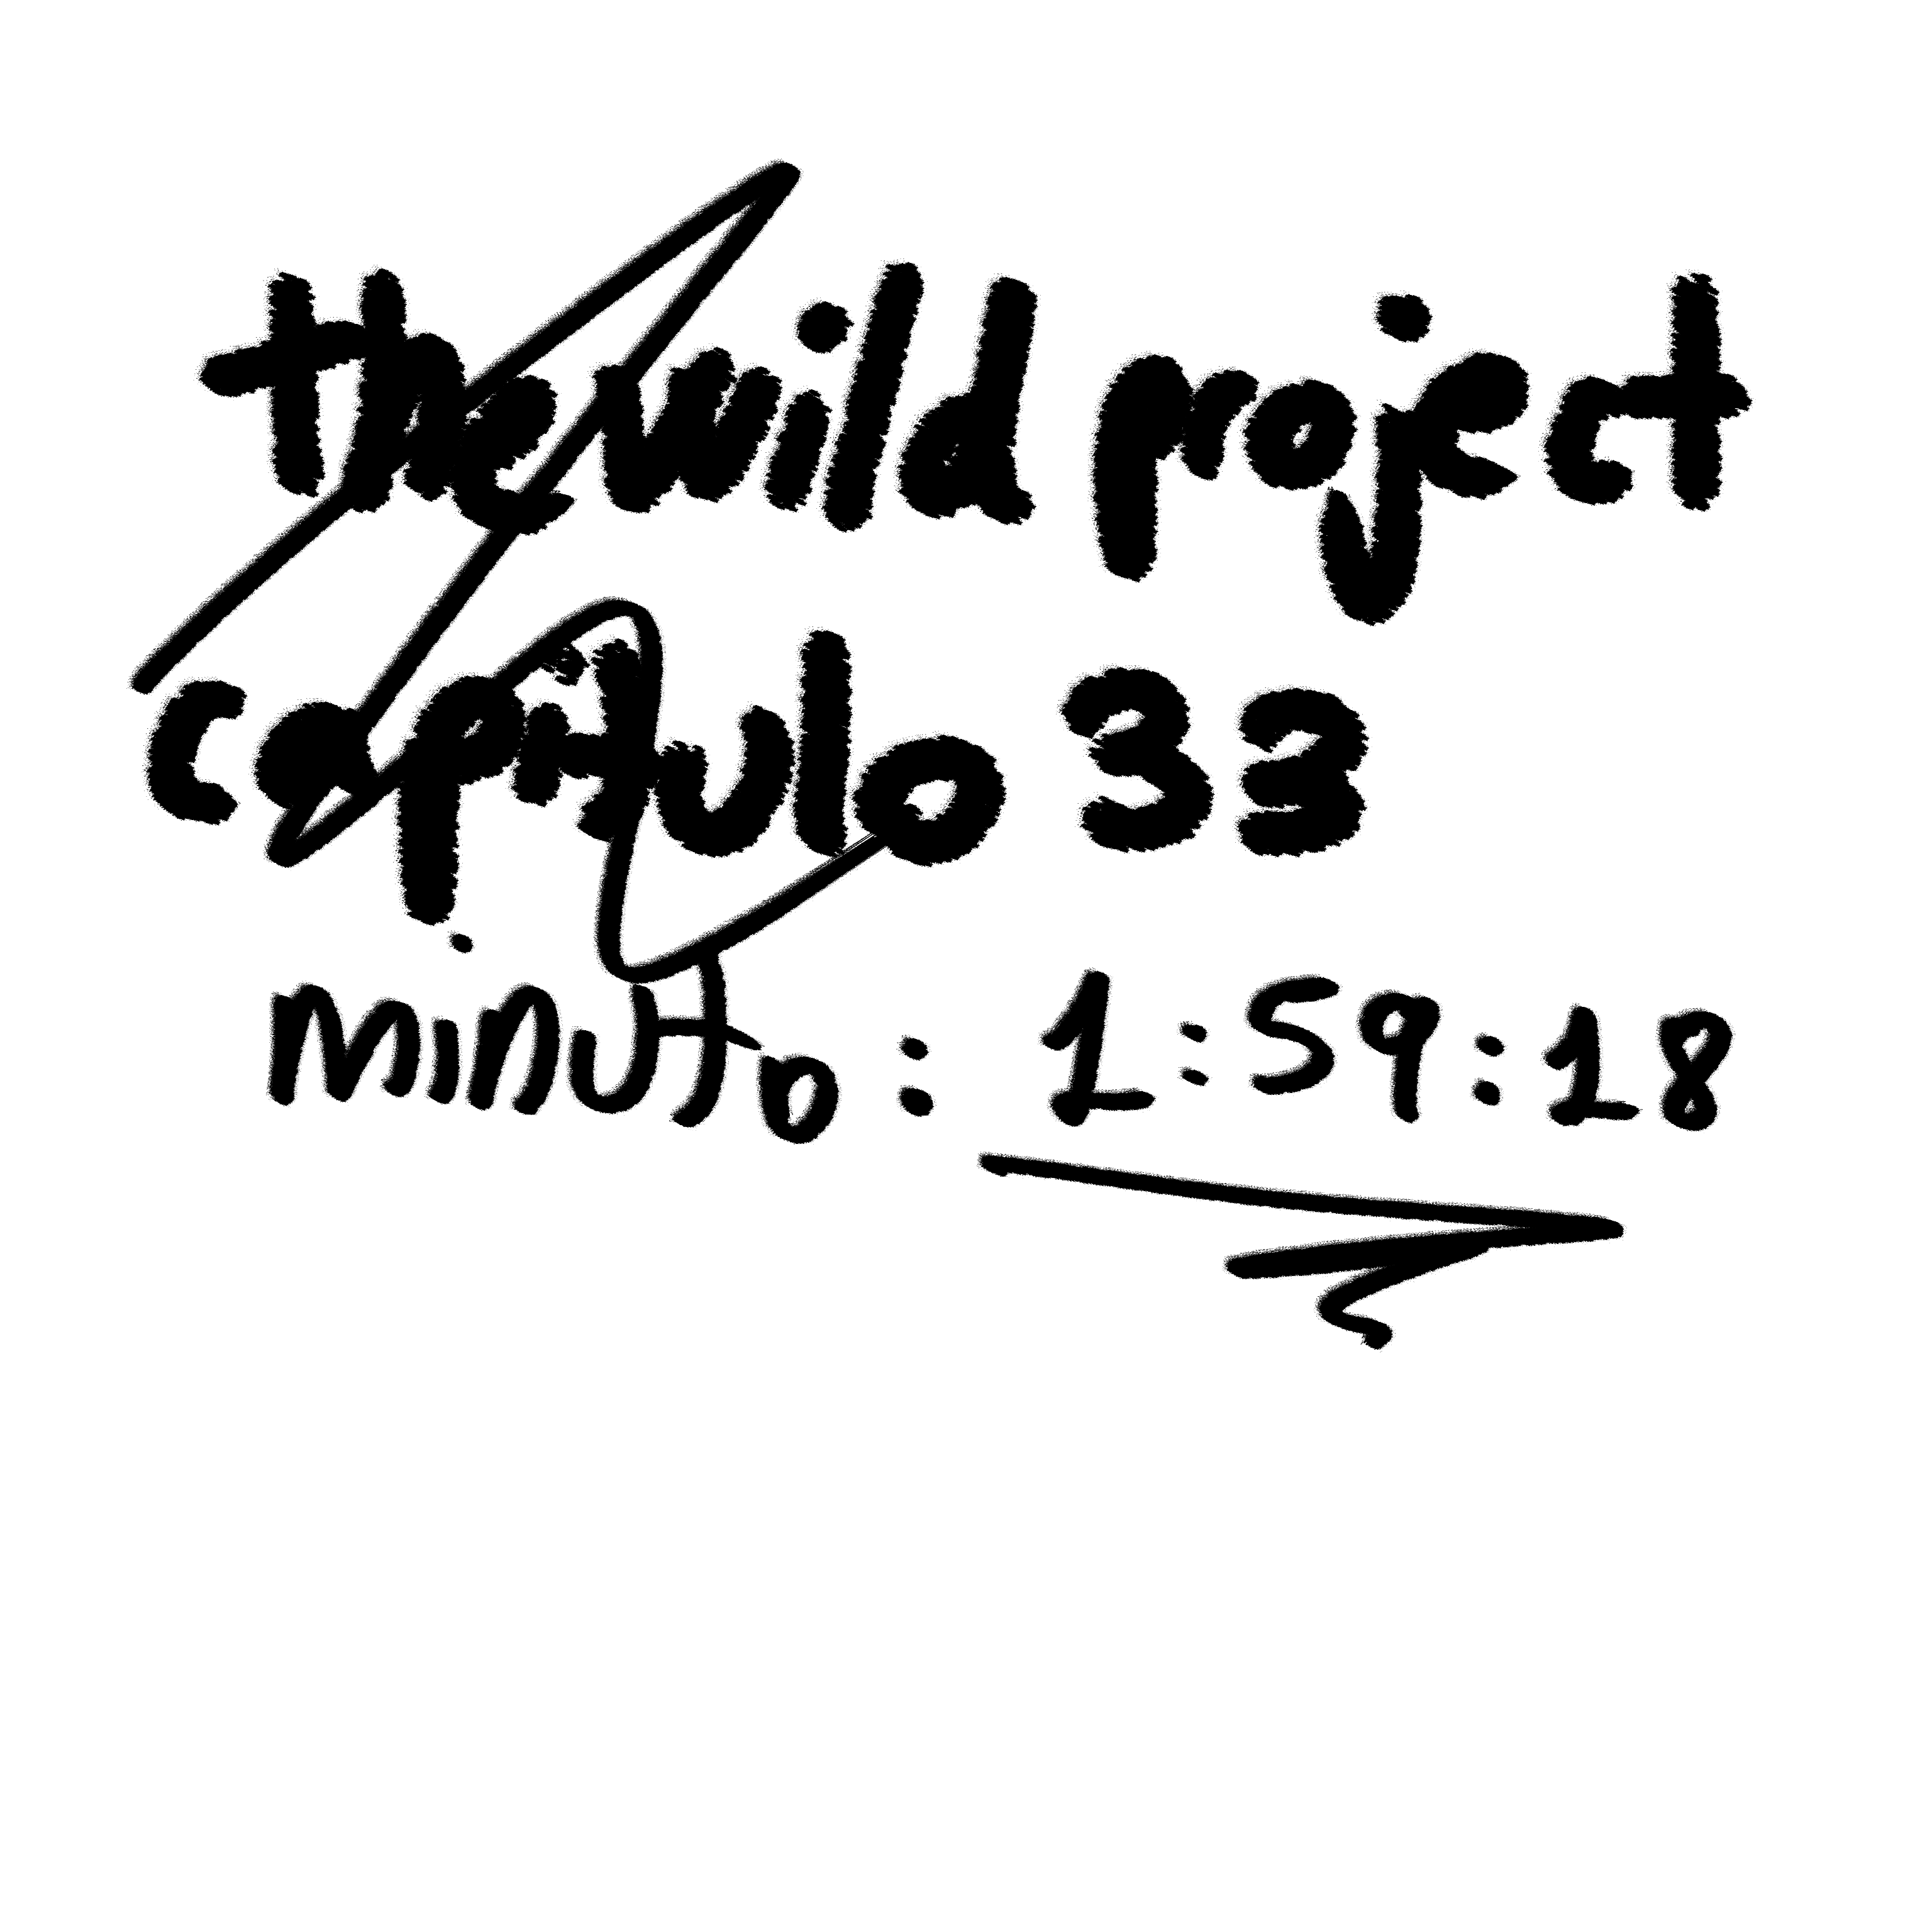 the wild project
capitulo 33
minuto: 1:59:18